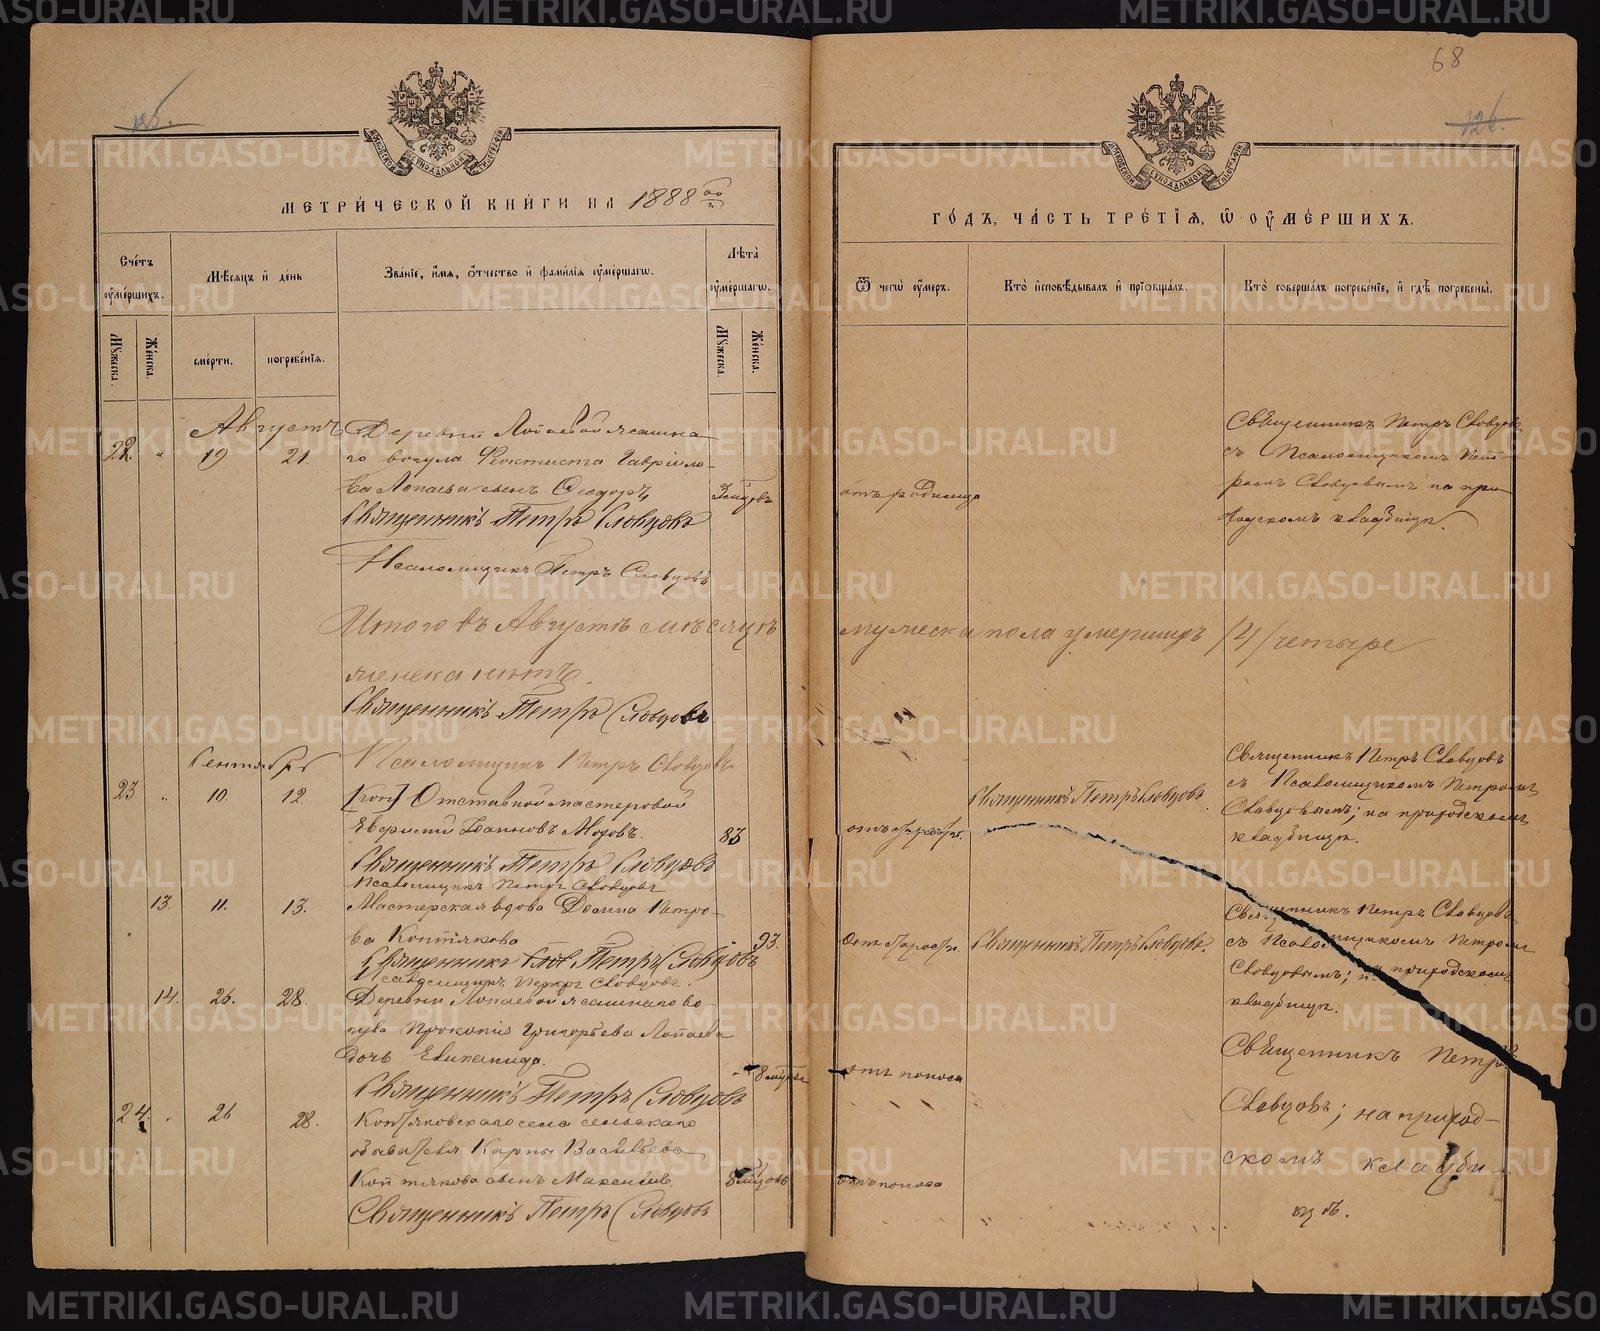 METRIKI.GASO-URAL.RU
68
125.
126.
МОСКОВСКОЙ СѴНОДАЛЬНОЙ ТИПОГРАФІИ
МЕТРИ́ЧЕСКОЙ КНИ́ГИ НА 1888 ой
Сче́тъ ᲂу҆ме́ршихъ.
Мꙋ́жеска.
Же́нска.
Мѣ́сяцъ и҆ де́нь
сме́рти.
погребе́нїѧ.
Зва́нїе, и҆́мѧ, ѻ҆́тчество и҆ фами́лїѧ ᲂу҆ме́ршагѡ.
Лѣ́та ᲂу҆ме́ршагѡ.
Мꙋ́жеска.
Же́нска.
Августъ
22. " 19 21.
Деревни Лопаевой ясашна-
го вогула Феоктиста Гаврило-
ва Лопаева сынъ Ѳеодоръ
Священникъ Петръ Словцовъ
Псаломщикъ Петръ Словцовъ
Итого въ Августѣ мѣсяцѣ
женска нѣтъ.
Священникъ Петръ Словцовъ
Псаломщикъ Петръ Словцовъ
Сентябрь
23. " 10. 12.
Отставной мастеровой
Іоанновъ 83
Священникъ Петръ Словцовъ
Псаломщикъ Петръ Словцовъ
13. 11. 13.
Мастерская вдова Домна Петро-
ва Коптякова 93.
Священникъ Петръ Словцовъ
Псаломщикъ Петръ Словцовъ.
14. 26. 28.
Деревни Лопаевой ясашнаго во-
гула Прокопія Григорьева Лопаева
дочь
Священникъ Петръ Словцовъ
24. " 26 28.
Коптяковскаго села сельскаго
обывателя Карпа Васильева
Коптякова сынъ
Священникъ Петръ Словцовъ
ГО́ДЪ, ЧА́СТЬ ТРЕ́ТЇѦ, Ѡ҆ ОУ҆МЕ́РШИХЪ.
Ѿ чегѡ̀ ᲂу҆́меръ.
Кто̀ и҆сповѣ́дывалъ и҆ прїѻбща́лъ.
Кто̀ соверша́лъ погребе́нїе, и҆ гдѣ̀ погребены̀.
отъ родимца
Священникъ Петръ Словцовъ
съ Псаломщикомъ Пет-
ромъ Словцовымъ на при-
ходскомъ кладбищѣ.
мужеска пола умершихъ /4/ четыре
отъ старости.
Священникъ Петръ Словцовъ.
Священникъ Петръ Словцовъ
съ Псаломщикомъ Петромъ
Словцовымъ; на приходскомъ
кладбищѣ.
Отъ старости.
Священникъ Петръ Словцовъ.
Священникъ Петръ Словцовъ
съ Псаломщикомъ Петромъ
Словцовымъ; на приходскомъ
кладбищѣ.
отъ поноса
Священникъ Петръ
Словцовъ; на приход-
скомъ кладби-
щѣ.
отъ поноса